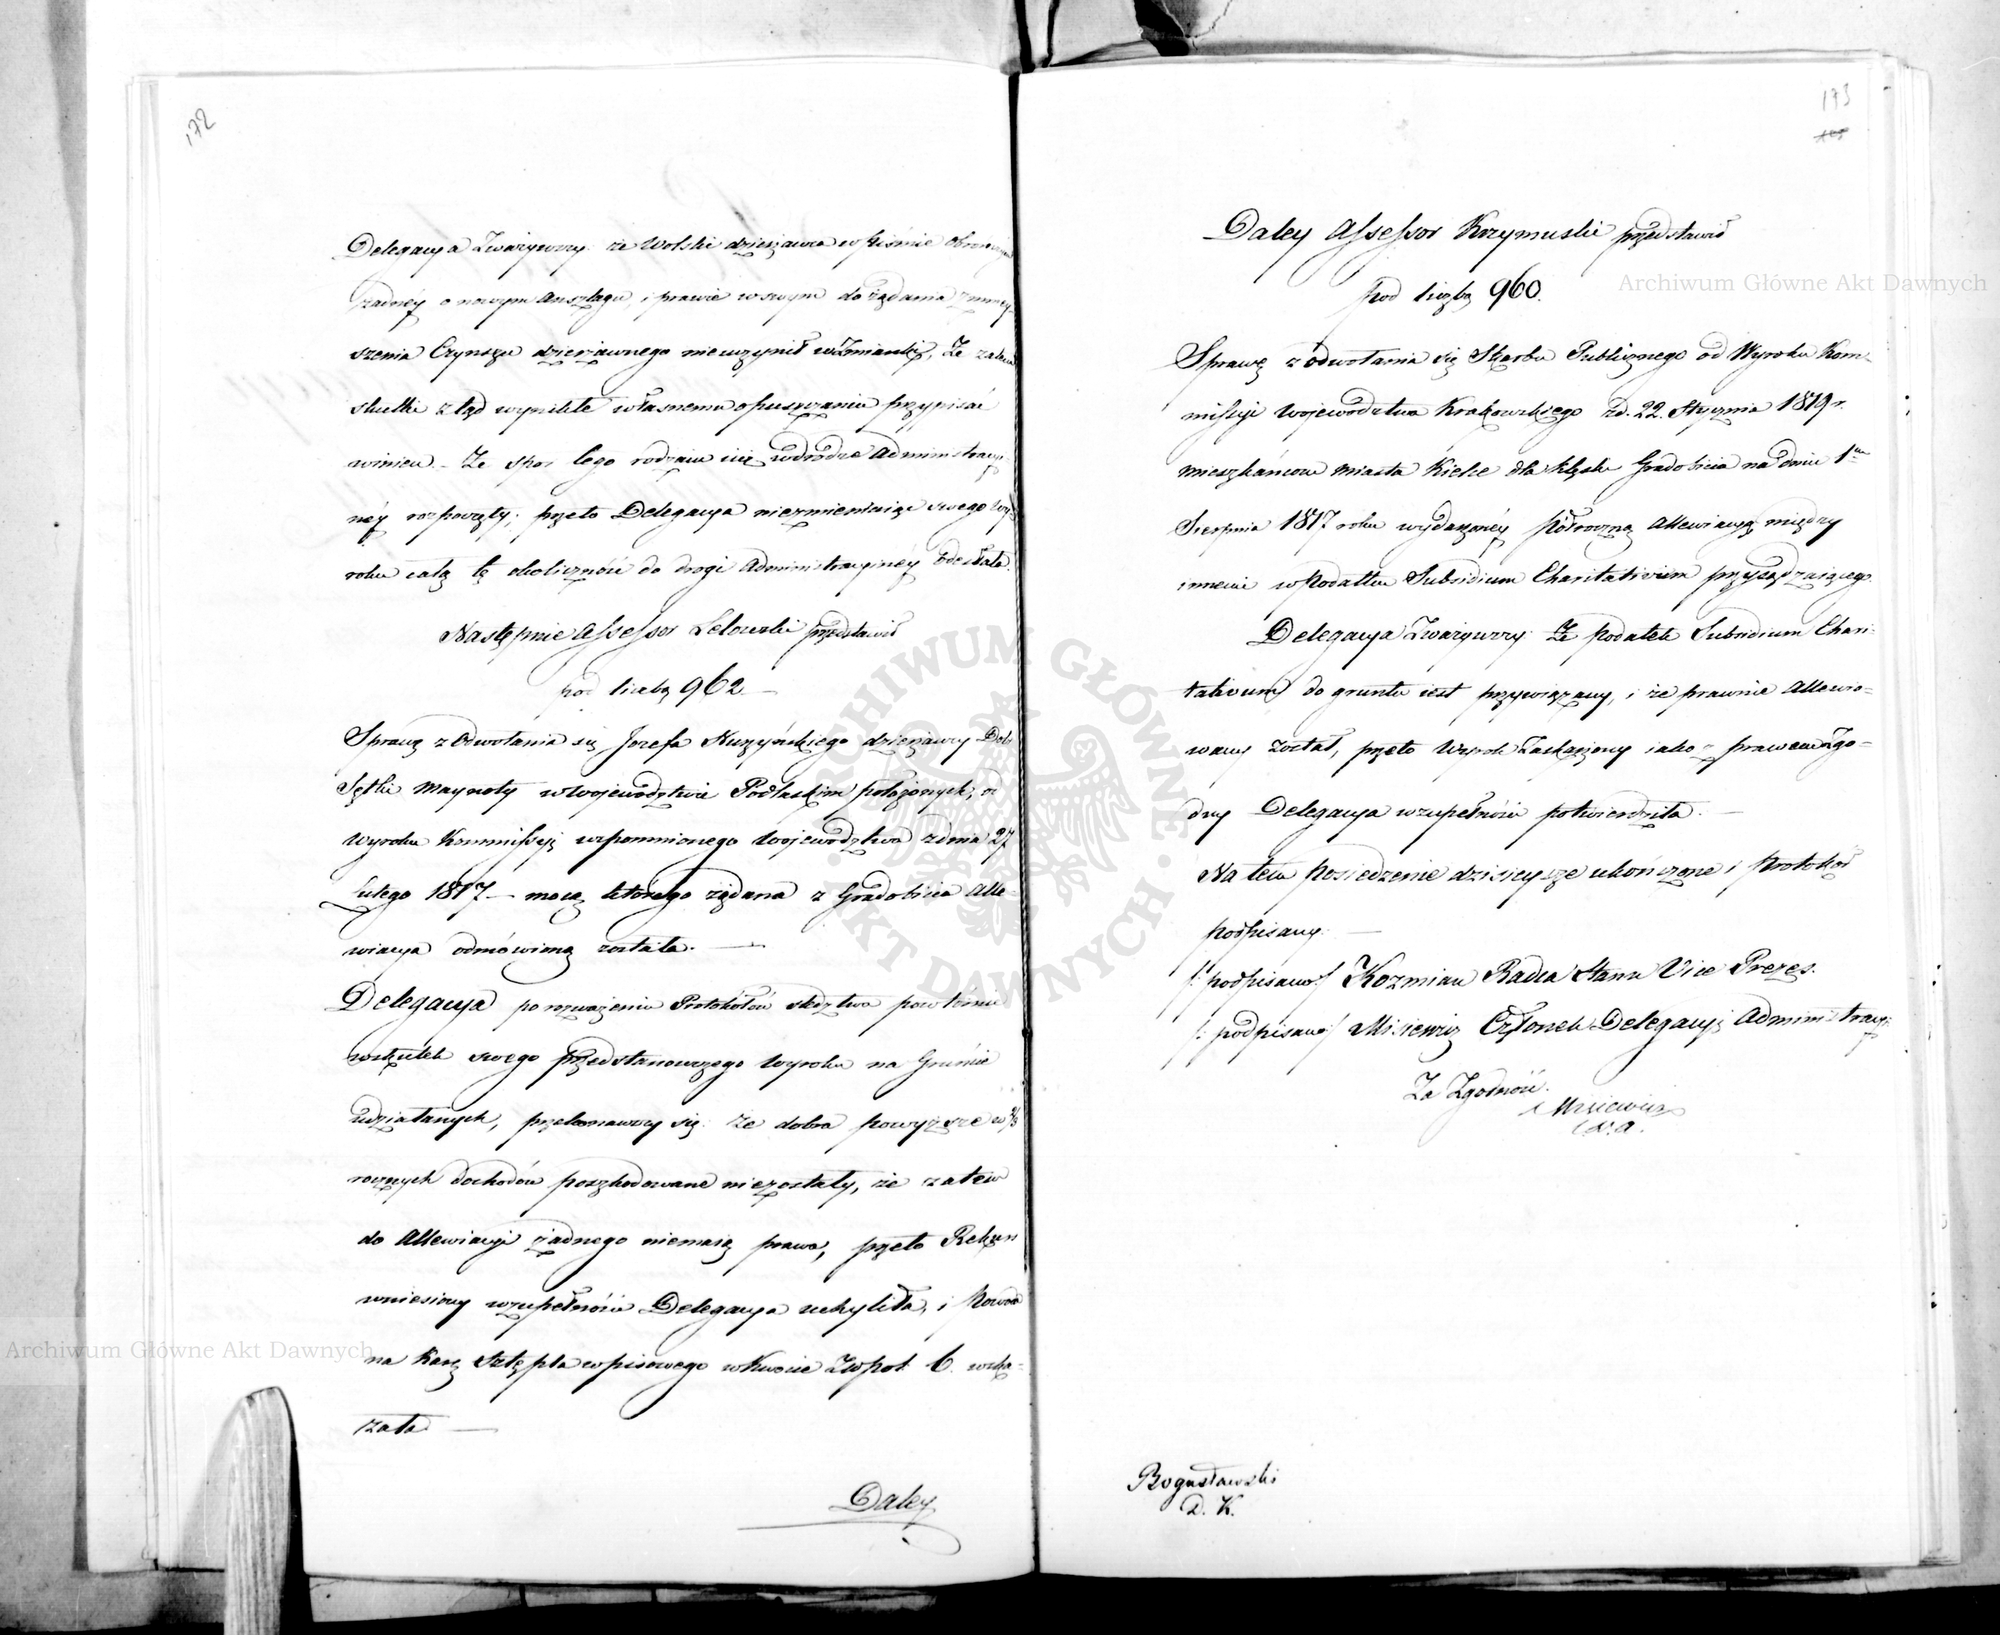 172
Delegacya Zważywszy: że Wolski dzierżawca w piśmie
żadnéy o nowym Anszlagu, i prawie w swym do żądania zmniey-
szenia Czynszu dzierżawnego nieuczynił wzmianki, Że zatem
skutki ztąd wynikłe własnemu opuszczeniu przypisać
winien. Że spor tego rodzaiu iuż w drodze Administracyi-
néy rozpoczęty; przeto Delegacya niezmieniaiąc swego Wy-
roku całą tę okoliczność do drogi Administracyinéy odesłała.
Następnie Assessor Lelowski przedstawił
pod liczbą 962 —
Sprawę z Odwołania się Jozefa Kuczyńskiego dzierżawcy Dóbr
Maynoty w Województwie Podlaskim położonych, od
Wyroku Kommissyi wspomnionego Województwa z dnia 27
Lutego 1817 — mocą którego żądana z Gradobicia Alle-
wiacya odmówioną została. —
Delegacya po rozważeniu Protokołów śledztwa powtórnie
wskutek swego przedstanowczego Wyroku na Gruncie
udziałanych, przekonawszy się: że dobra powyższe w 2/3
rocznych dochodów poszkodowane niezostały, że zatem
do Allewiacyi żadnego niemaią prawa, przeto Rekurs
wniesiony wzupełności Delegacya uchyliła, i Powoda
na karę Sztępla wpisowego w kwocie Złpol: 6. wska-
zała —
Daley
173
Daley Assessor Krzymuski przedstawił
pod liczbą 960.
Sprawę z odwołania się Skarbu Publicznego od Wyroku Kom-
missyi Województwa Krakowskiego zd. 22. Stycznia 1819 r.
mieszkańcom miasta Kielce dla klęski Gradobicia na dniu 1m
Sierpnia 1817 roku wydarzonéy półroczną Allewiacyą między
innemi w Podatku Subsidium Charitativum przysądzaiącego.
Delegacya Zważywszy: Że podatek Subsidium Chari-
tativum do gruntu iest przywiązany, i że prawnie Allewio-
wany został, przeto Wyrok Zaskarżony iako z prawem Zgo-
dny Delegacya wzupełności potwierdziła. —
Na tém Posiedzenie dzisieysze ukończone i Protokół
podpisany. —
/: podpisano / Kozmian Radca Stanu Vice Prezes.
/: podpisano / Misiewicz Członek Delegacyi Administracyi:
Za Zgodność.
Misiewicz
Bogusławski
D. K.
Archiwum Główne Akt Dawnych
Archiwum Główne Akt Dawnych
ARCHIWUM GŁÓWNE AKT DAWNYCH